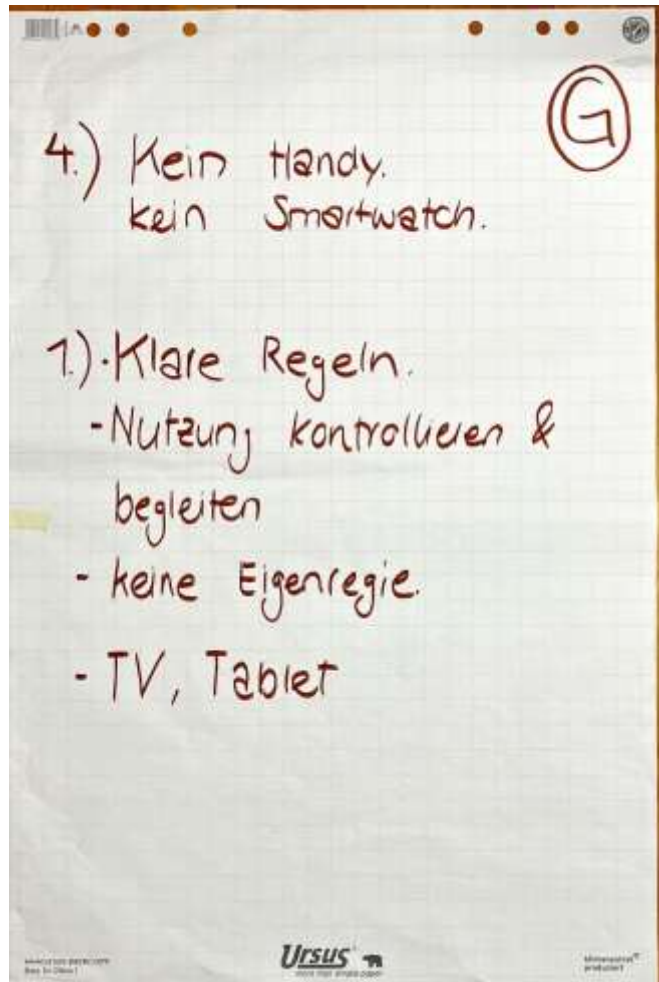 G
4.) Kein Handy.
kein Smartwatch.
1.) · Klare Regeln.
- Nutzung kontrollieren &
begleiten
- keine Eigenregie.
- TV, Tablet
Ursus